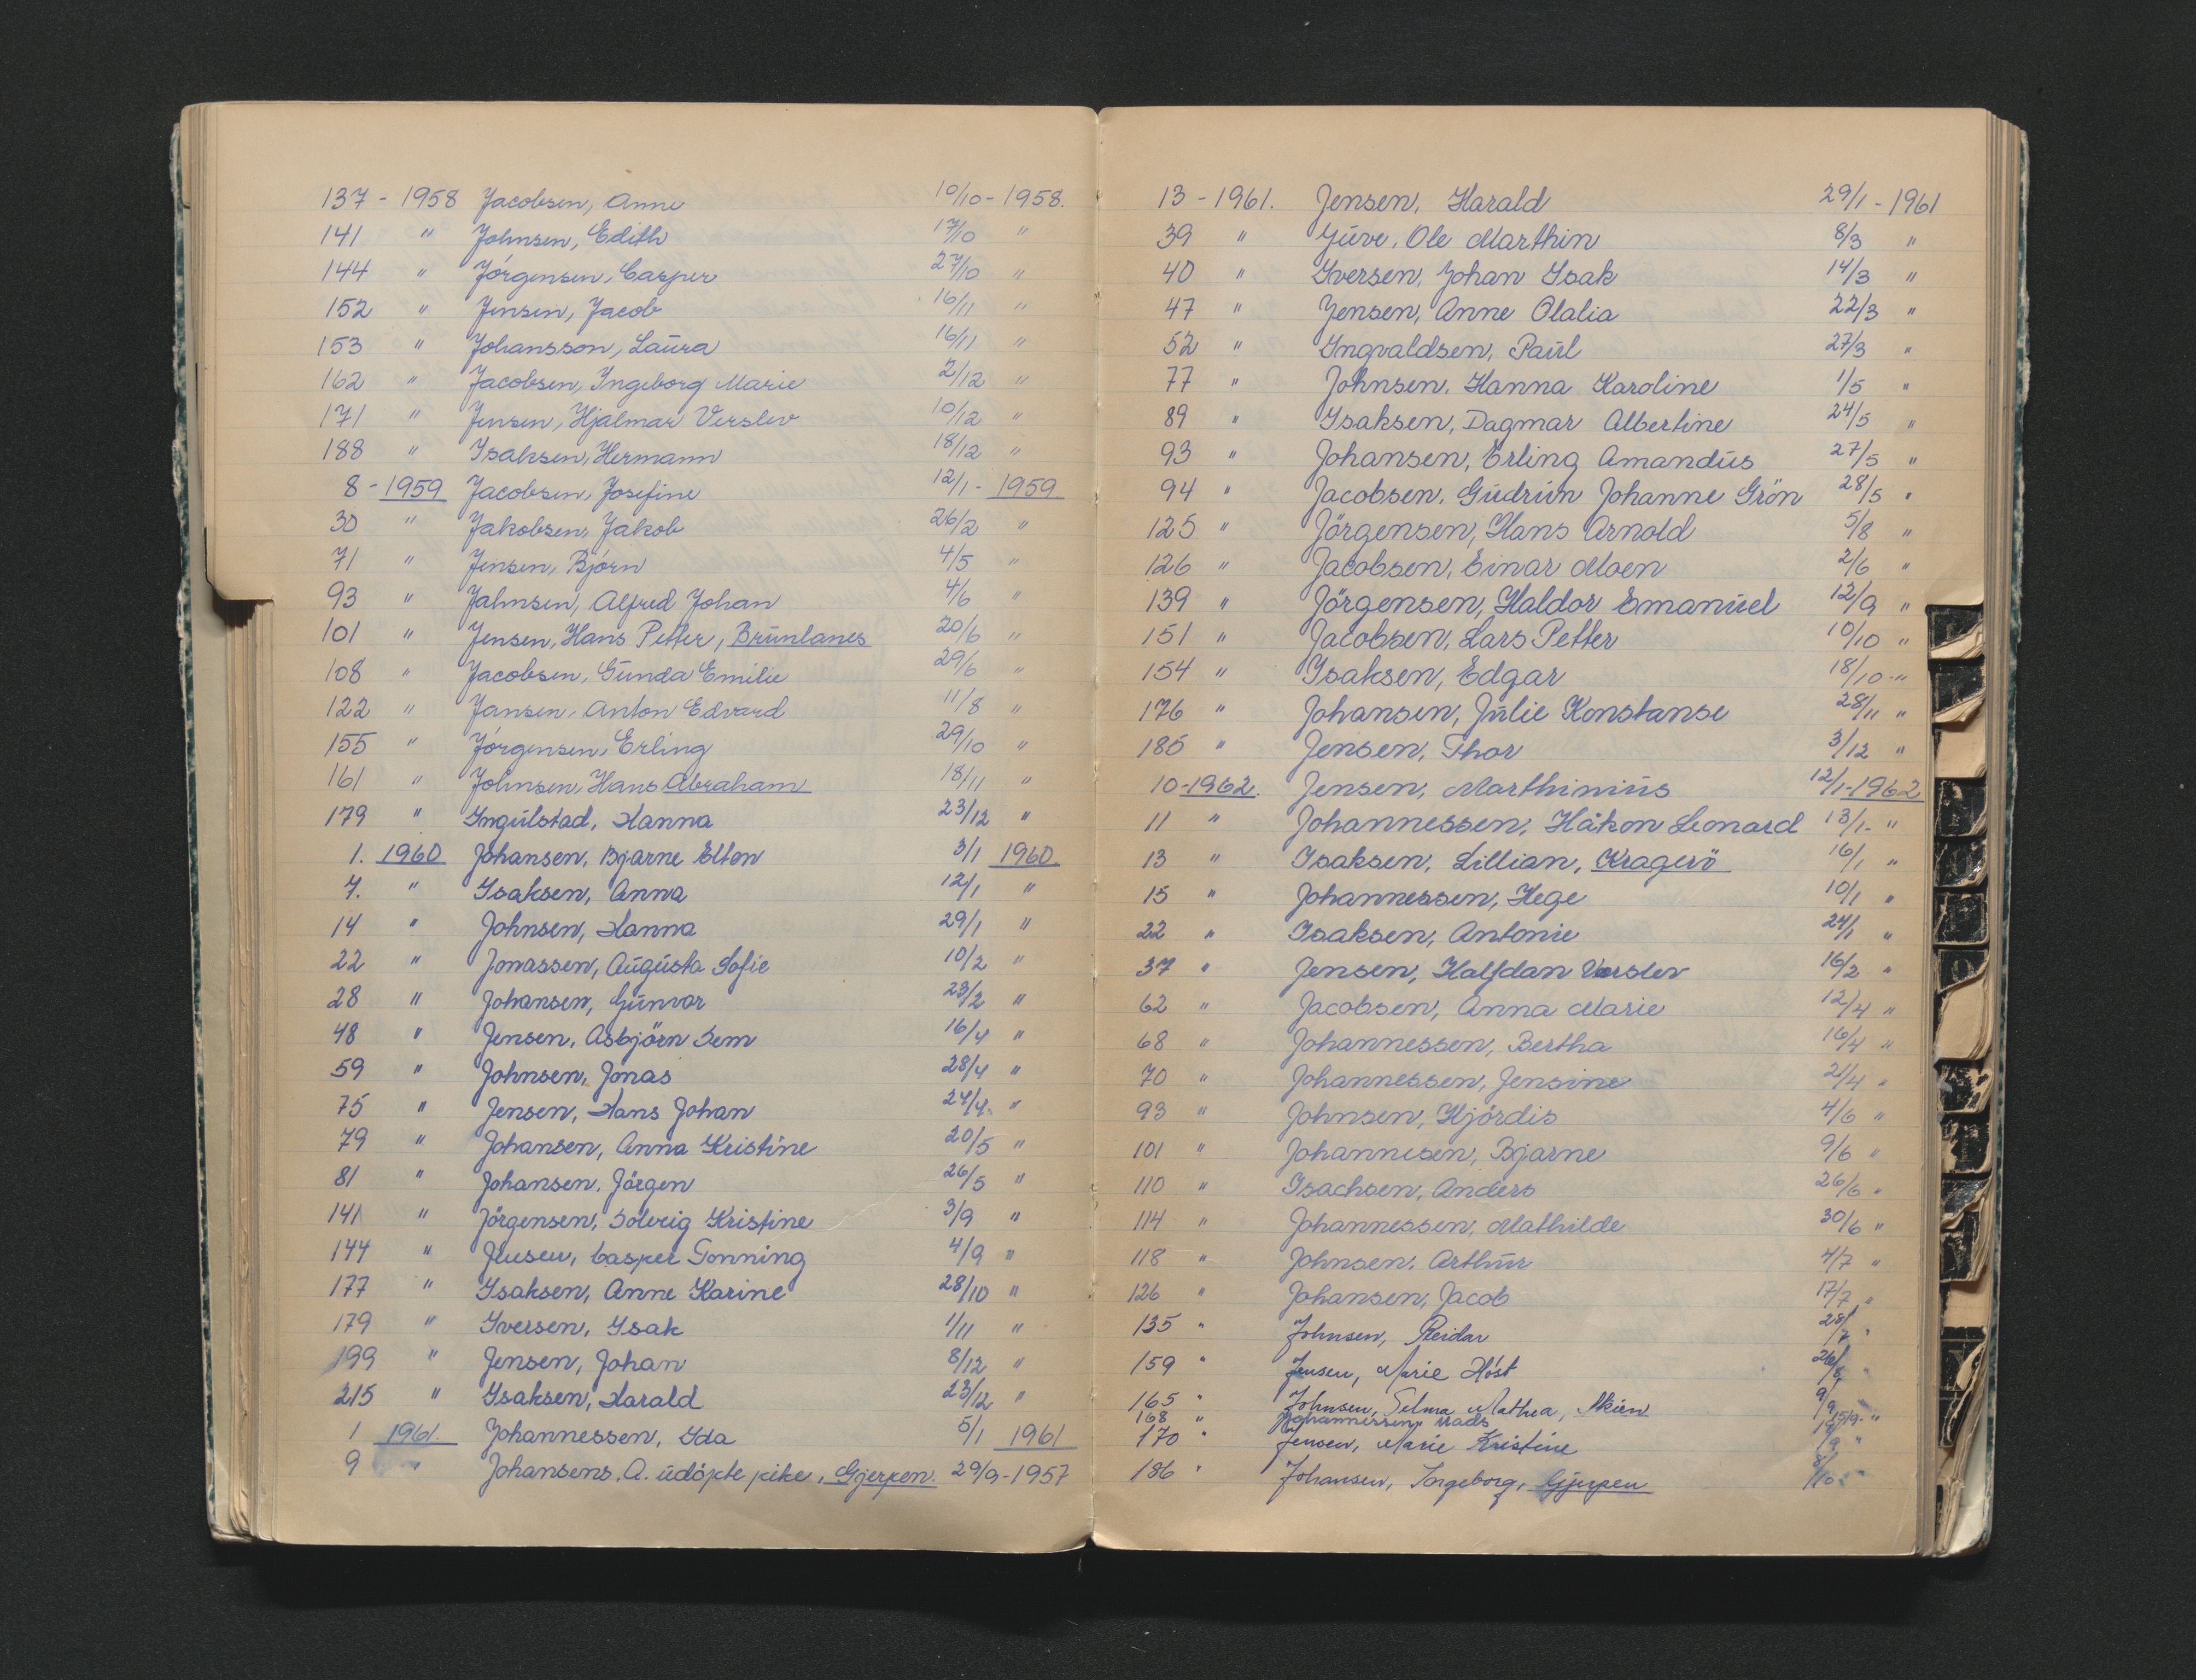 137 - 1958 Jacobsen, Anne 10/10 - 1958.
141 " Johnsen, Edith 17/10 "
144 " Jörgensen, Casper 27/10 "
152 " Jensen, Jacob 16/11 "
153 " Johansson, Laura 16/11 "
162 " Jacobsen, Ingeborg Marie 2/12 "
171 " Jensen, Hjalmar Verslev 10/12 "
188 " Isaksen, Hermann 18/12 "
8 - 1959 Jacobsen, Josefine 12/1 - 1959
30 " Jakobsen, Jakob 26/2 "
71 " Jensen, Björn 4/5 "
93 " Jahnsen, Alfred Johan 4/6 "
101 " Jensen, Hans Petter, Brunlanes 20/6 "
108 " Jacobsen, Gunda Emilie 29/6 "
122 " Jansen, Anton Edvard 11/8 "
155 " Jörgensen, Erling 29/10 "
161 " Johnsen, Hans Abraham 18/11 "
179 " Ingulstad, Hanna 23/12 "
1. 1960 Johansen, Bjarne Elton 3/1 1960.
7. " Isaksen, Anna 12/1 "
14 " Johnsen, Hanna 29/1 "
22 " Jonassen, Augusta Sofie 10/2 "
28 " Johansen, Gunvor 23/2 "
48 " Jensen, Asbjörn Sem 16/4 "
59 " Johnsen, Jonas 28/4 "
75 " Jensen, Hans Johan 24/4. "
79 " Johansen, Anna Kristine 20/5 "
81 " Johansen, Jörgen 26/5 "
141 " Jörgensen, Solveig Kristine 3/9 "
144 " Jensen, Casper Tonning 4/9 "
177 " Isaksen, Anne Karine 28/10 "
179 " Iversen, Isak 1/11 "
199 " Jensen, Johan 8/12 "
215 " Isaksen, Harald 23/12 "
1 1961. Johannessen, Ida 5/1 1961
9 " Johansens, A. udöpte pike, Gjerpen. 29/9 - 1957
13 - 1961. Jensen, Harald 29/1 - 1961
39 " Juve, Ole Marthin 8/3 "
40 " Iversen, Johan Isak 14/3 "
47 " Jensen, Anne Olalia 22/3 "
52 " Ingvaldsen, Paul 27/3 "
77 " Johnsen, Hanna Karoline 1/5 "
89 " Isaksen, Dagmar Albertine 24/5 "
93 " Johansen, Erling Amandus 27/5 "
94 " Jacobsen, Gudrun Johanne Grön 28/5 "
125 " Jörgensen, Hans Arnold 5/8 "
126 " Jacobsen, Einar Moen 2/6 "
139 " Jörgensen, Haldor Emanuel 12/9 "
151 " Jacobsen, Lars Petter 10/10 "
154 " Isaksen, Edgar 18/10 - "
176 " Johansen, Julie Konstanse 28/11 "
185 " Jensen, Thor 3/12 "
10 - 1962. Jensen, Marthinius 12/1 - 1962
11 " Johannessen, Håkon Leonard 13/1 - "
13 " Isaksen, Lillian, Kragerö 16/1 "
15 " Johannessen, Hege 10/1 "
22 " Isaksen, Antonie 24/1 "
37 " Jensen, Halfdan Verslev 16/2 "
62 " Jacobsen, Anna Marie 12/4 "
68 " Johannessen, Bertha 16/4 "
70 " Johannessen, Jensine 2/4 "
93 " Johnsen, Hjördis 4/6 "
101 " Johannesen, Bjarne 9/6 "
110 " Isachsen, Anders 26/6 "
114 " Johannessen, Mathilde 30/6 "
118 " Johnsen, Arthur 4/7 "
126 " Johansen, Jacob 17/7 "
135 " Johnsen, Reidar 28/7 "
159 " Jensen, Marie Höst "
165 " Johnsen, Selma Mathea, Skien 9/9
168 " Johannessen, Mads "
170 " Jensen, Marie Kristine "
186 " Johansen, Ingeborg, Gjerpen 8/10 "